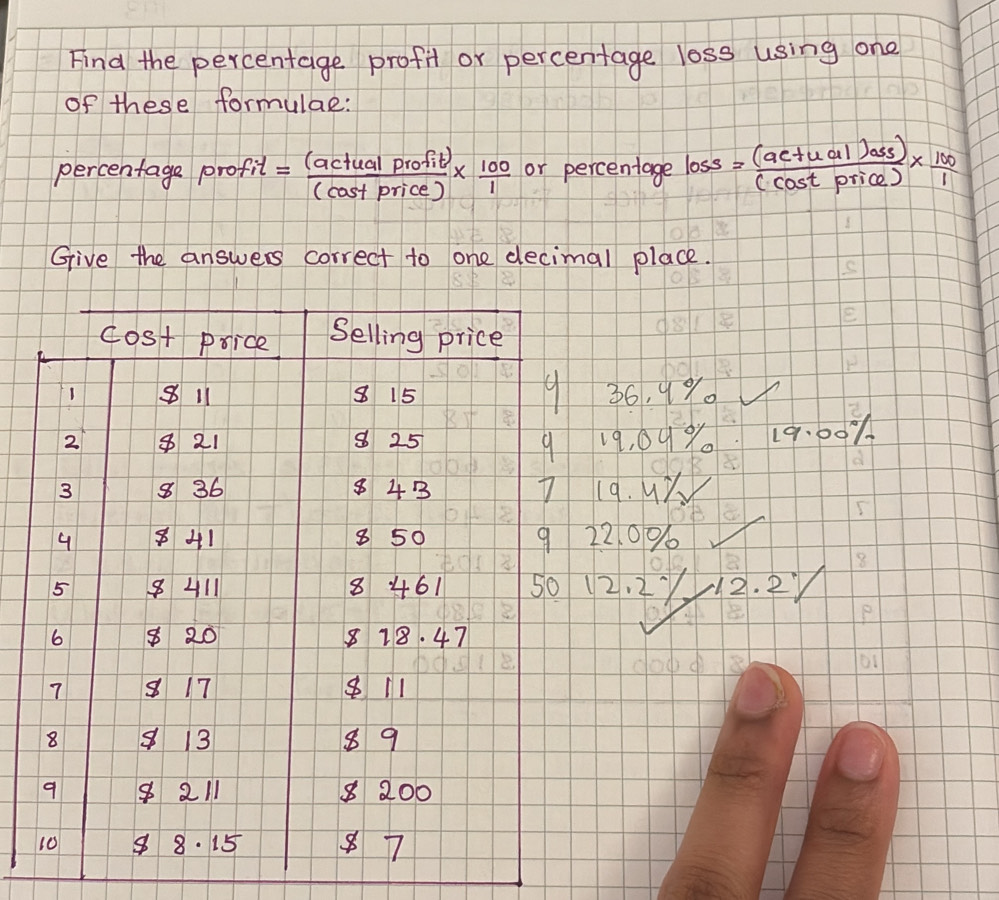 Find the percentage profit or percentage loss using one
of these formulae:
percentage profit = (actual profit)/(cost price) × 100/1 or percentage loss = (actual loss)/(cost price) × 100/1
Give the answers correct to one decimal place.
Cost price Selling price
1 $ 11 $ 15 4 36.4% ✓
2 $ 21 $ 25 4 19.04% 19.00%
3 $ 36 $ 43 7 19.4% ✓
4 $ 41 $ 50 9 22.0% ✓
5 $ 411 $ 461 50 12.2% ✓ 12.2%
6 $ 20 $ 18.47
7 $ 17 $ 11
8 $ 13 $ 9
9 $ 211 $ 200
10 $ 8.15 $ 7